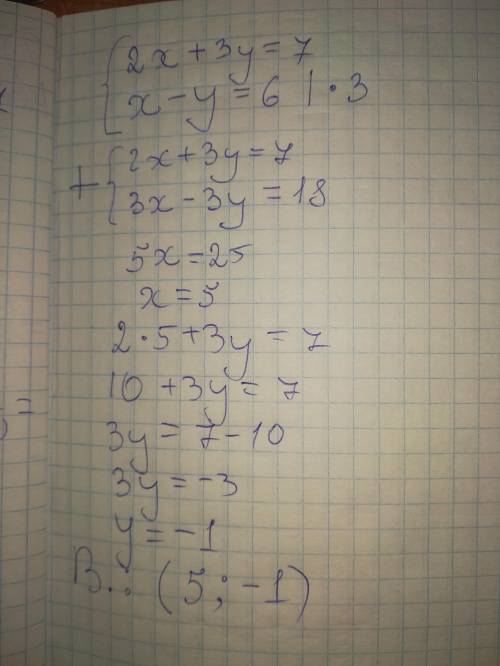 2x + 3y = 7
x - y = 6 | · 3
+ 2x + 3y = 7
3x - 3y = 18
5x = 25
x = 5
2 · 5 + 3y = 7
10 + 3y = 7
3y = 7 - 10
3y = -3
y = -1
В.: (5; -1)